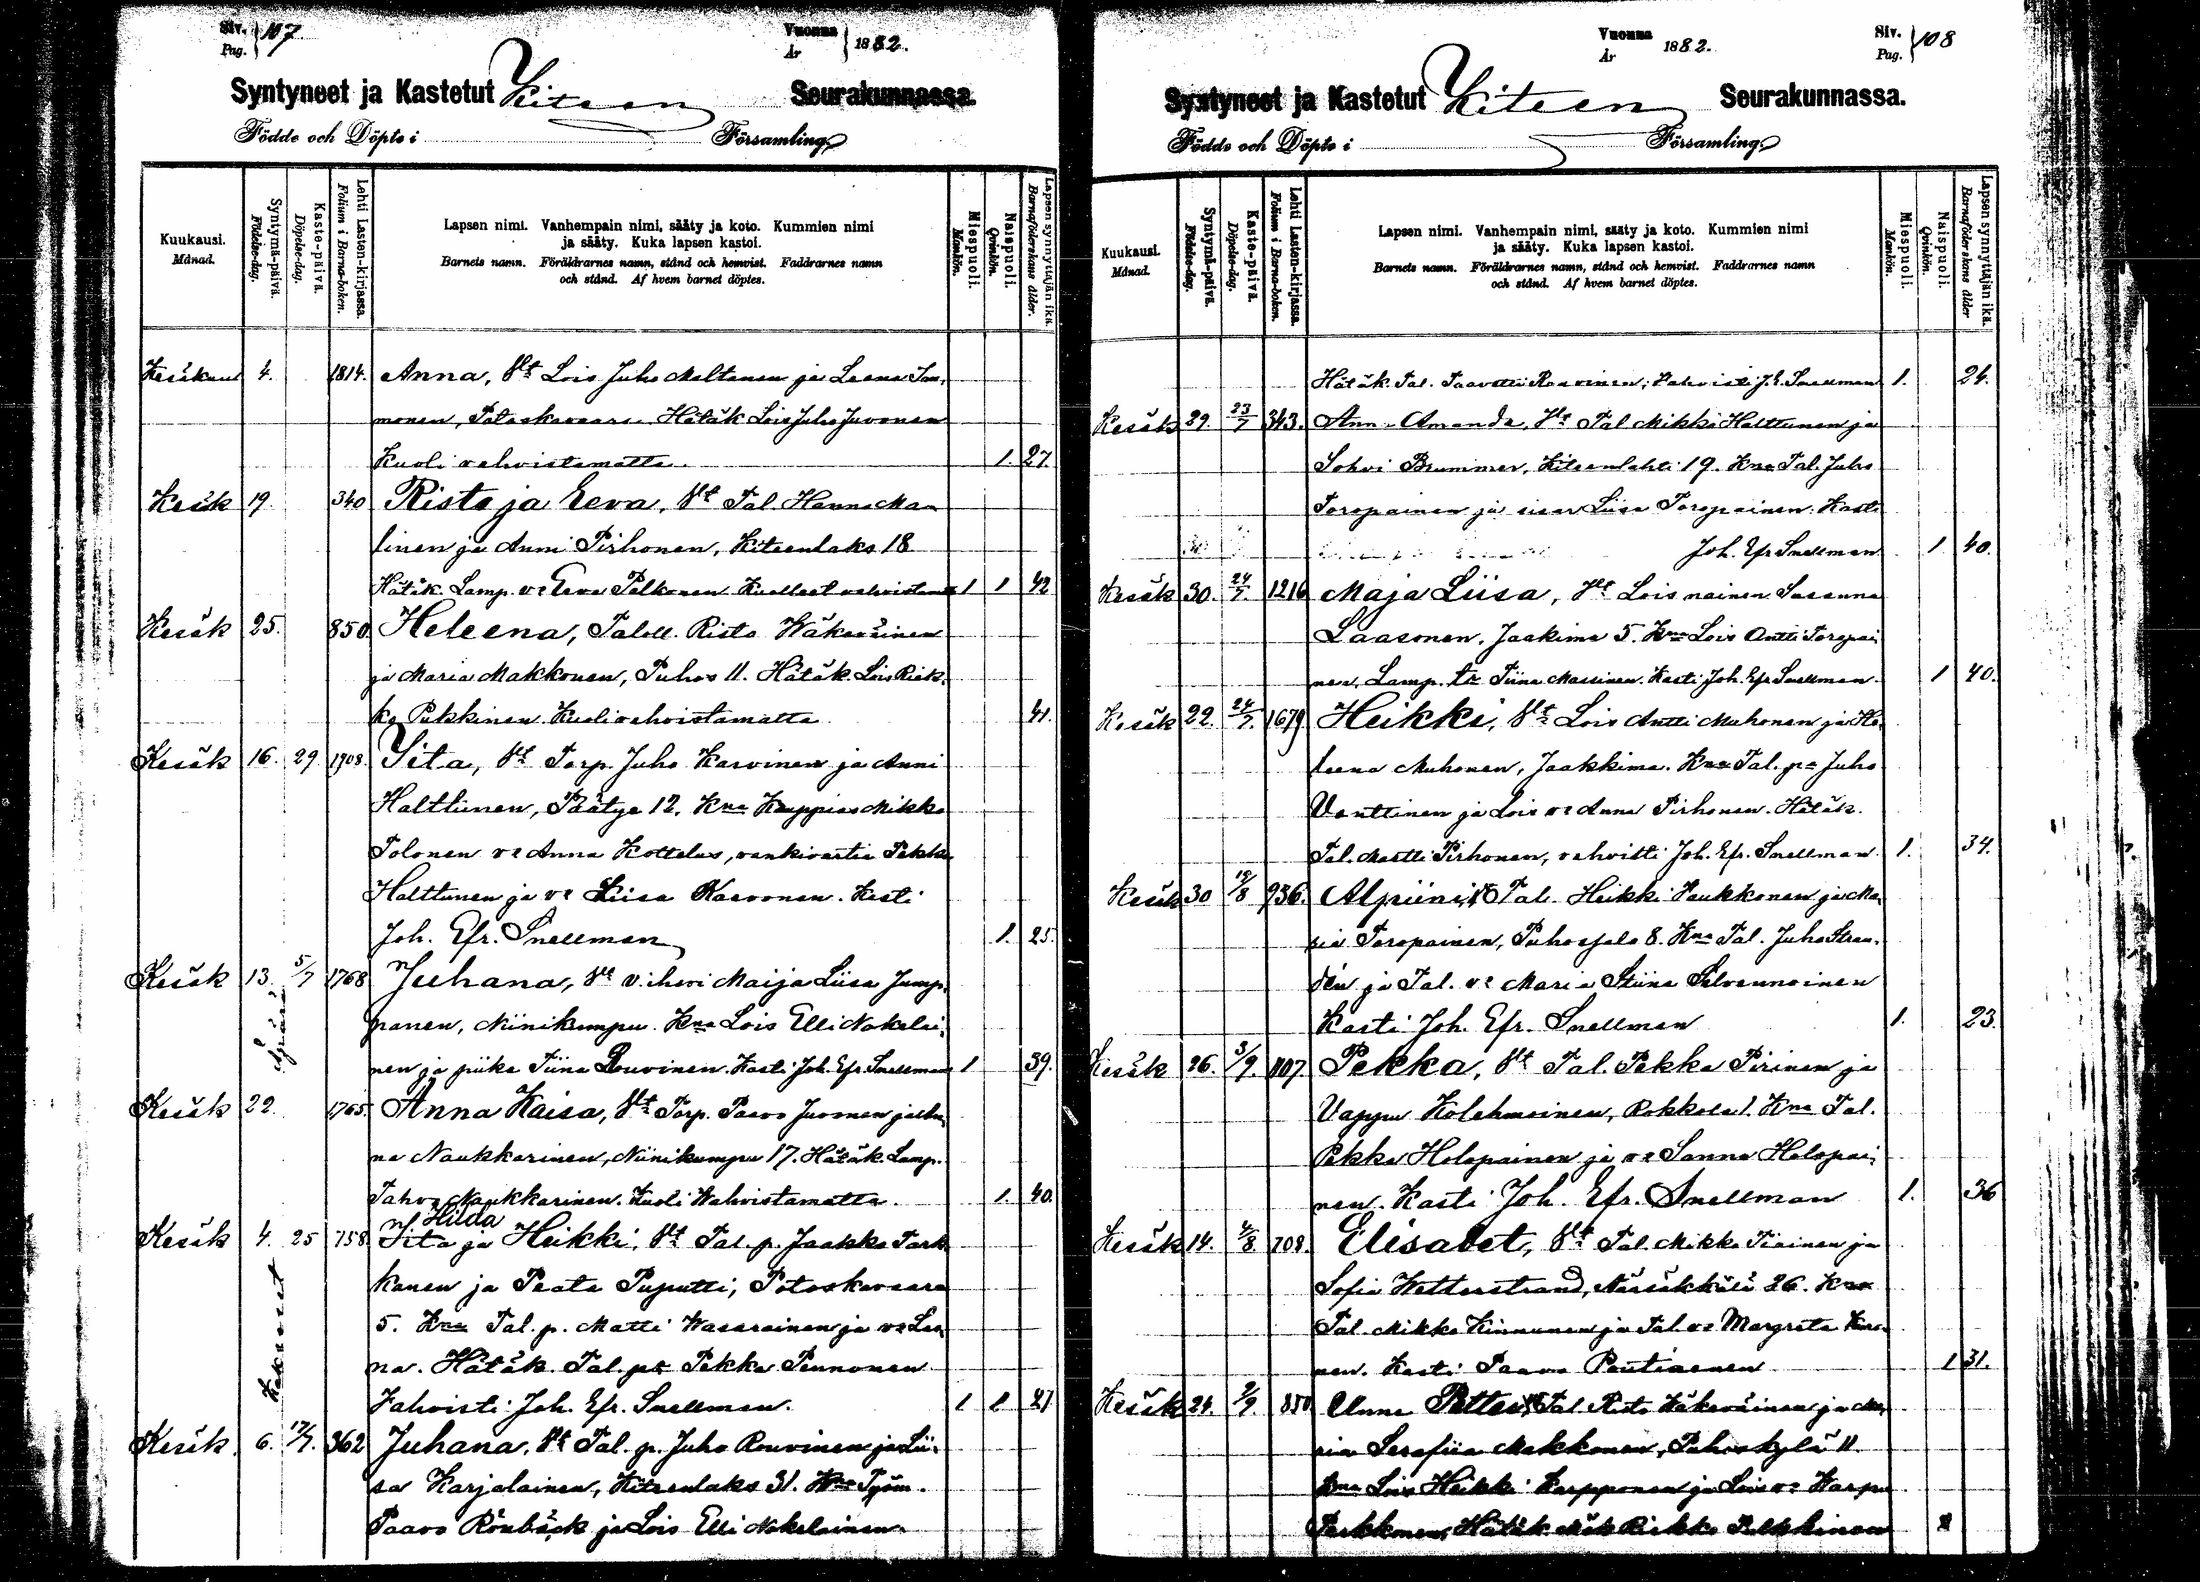 Siv. Pag. } 107
Vuonna År } 1882.
Syntyneet ja Kastetut Kiteen Seurakunnassa.
Födde och Döpte i Församling
Kuukausi. Månad.
Syntymä-päivä. Födelse-dag.
Kaste-päivä. Döpelse-dag.
Lehti Lasten-kirjassa. Folium i Barna-boken.
Lapsen nimi. Vanhempain nimi, sääty ja koto. Kummien nimi
ja sääty. Kuka lapsen kastoi.
Barnets namn. Föräldrarnes namn, stånd och hemvist. Faddrarnes namn
och stånd. Af hvem barnet döptes.
Miespuoli. Mankön.
Naispuoli. Qvinkön.
Lapsen synnyttäjän ikä. Barnaföderskans ålder.
Kesäkuu 4. 1814. Anna, Vt Lois Juho Maltanen ja Leena Im,
monen, Potoskavaara. Hätäk Lois Juho Juvonen
Kuoli vahvistamatta. 1. 27.
Kesäk 19. 340 Risto ja Eeva, Vt Tal. Hannu Ma
linen ja Anni Pirhonen, Kiteenlaks 18
Hätäk. Lamp. va Eeva Pelkonen Kuolleet vahvistam 1 1 42
Kesäk 25. 850 Heleena, Taloll. Risto Wäkeväinen
ja Maria Makkonen, Puhos 11. Hätäk. Lois Riek,
ko Pukkinen. Kuoli vahvistamatta 41.
Kesäk 16. 29 1908. Iita, Vt Torp. Juho Karvinen ja Anni
Halttunen, Päätye 12. Kna Kauppias Mikko
Tolonen va Anna Kottelus, vankivartia Pekka
Halttunen ja va Liisa Karvonen. Kasti
Joh. Efr. Snellman 1. 25.
Kesäk 13. 5/7 1768 Juhana, Vt v. ihmi Maija Liisa Jump,
panen, Niinikumpu. Kna Lois Elli Nokelai,
nen ja piika Tiina Rouvinen. Kasti Joh. Efr. Snellman 1 39.
Äpärä
Kesäk 22 1765. Anna Kaisa, Vt Torp. Paavo Juvonen ja An,
na Naukkarinen, Niinikumpu 17. Hätäk. Lamp.
Tahvo Naukkarinen. Kuoli Wahvistamatta. 1. 40.
Hilda
Kesäk 4. 25 758. Iita ja Heikki, Vt Tal. p. Jaakko Tark
kanen ja Peata Puputti, Potoskavaara
5. Kna Tal. p. Matti Wasarainen ja va Lee,
na. Hätäk. Tal. pa Pekka Pennonen
Vahvisti Joh. Efr. Snellman. 1 1 27
Kaksoset
Kesäk. 6. 17/7. 362 Juhana, Vt Tal. p. Juho Rouvinen ja Lii,
sa Karjalainen, Kiteenlaks 31. Kna Työm.
Paavo Rönbäck ja Lois Elli Nokelainen.
Vuonna År 1882.
Siv. Pag. } 108
Syntyneet ja Kastetut Kiteen Seurakunnassa.
Födde och Döpte i Församling
Kuukausi. Månad.
Syntymä-päivä. Födelse-dag.
Kaste-päivä. Döpelse-dag.
Lehti Lasten-kirjassa. Folium i Barna-boken.
Lapsen nimi. Vanhempain nimi, sääty ja koto. Kummien nimi
ja sääty. Kuka lapsen kastoi.
Barnets namn. Föräldrarnes namn, stånd och hemvist. Faddrarnes namn
och stånd. Af hvem barnet döptes.
Miespuoli. Mankön.
Naispuoli. Qvinkön.
Lapsen synnyttäjän ikä. Barnaföderskans ålder
Hätäk. Tal. Taavetti Rouvinen, Vahvisti J. E. Snellman 1. 24.
Kesäk 29. 23/7 343. Anna Amanda, Vt Tal Mikki Halttunen ja
Sohvi Brummer, Kiteenlahti 19. Kna Tal. Juho
Toropainen ja sisar Liisa Toropainen. Kasti
Joh. Efr Snellman 1 40.
Kesäk 30. 24/7. 1216 Maja Liisa, Vt Lois nainen Susanna
Laasonen, Jaakima 5. Kna Lois Antti Toropai
nen, Lamp. tr Tiina Massinen. Kasti Joh. Efr Snellman. 1 40.
Kesäk 22. 24/7. 1679 Heikki, Vt Lois Antti Muhonen ja He,
leena Muhonen, Jaakkima. Kna Tal. pa Juho
Vanttinen ja Lois va Anna Pirhonen. Hätäk.
Tal. Martti Pirhonen, vahvisti Joh. Efr. Snellman. 1. 34.
Kesäk 30 19/8 936. Alpiini, Vt Tal. Heikki Haukkanen ja Ma,
ria Toropainen, Puhosjala 8. Kna Tal. Juho Stran,
dén ja Tal. va Maria Stiina Silvennoinen
Kasti Joh. Efr. Snellman 1. 23.
Kesäk 26. 3/9. 1107. Pekka, Vt Tal. Pekka Pirinen ja
Vappu Kolehmainen, Rokkala 1. Kna Tal.
Pekka Holopainen ja va Sanna Holopai,
nen. Kasti Joh. Efr. Snellman 1. 36
Kesäk 14. 4/8. 708. Elisabet, Vt Tal. Mikko Tiainen ja
Sofia Wetterstrand, Närsäkkälä 26. Kna
Tal. Mikko Kinnunen ja Tal. va Margreta
nen. Kasti Paavo Pautiaenen 1 31.
Kesäk 24. 2/9. 850 Anna Vt Tal Risto Wäkeväinen ja Ma,
ria Serafiia Makkonen, Puhoskylä 11
Kna Lois Heikki Karpponen ja Lois va Karpu
Parkkonen, Hätäk Riekko Pukkinen